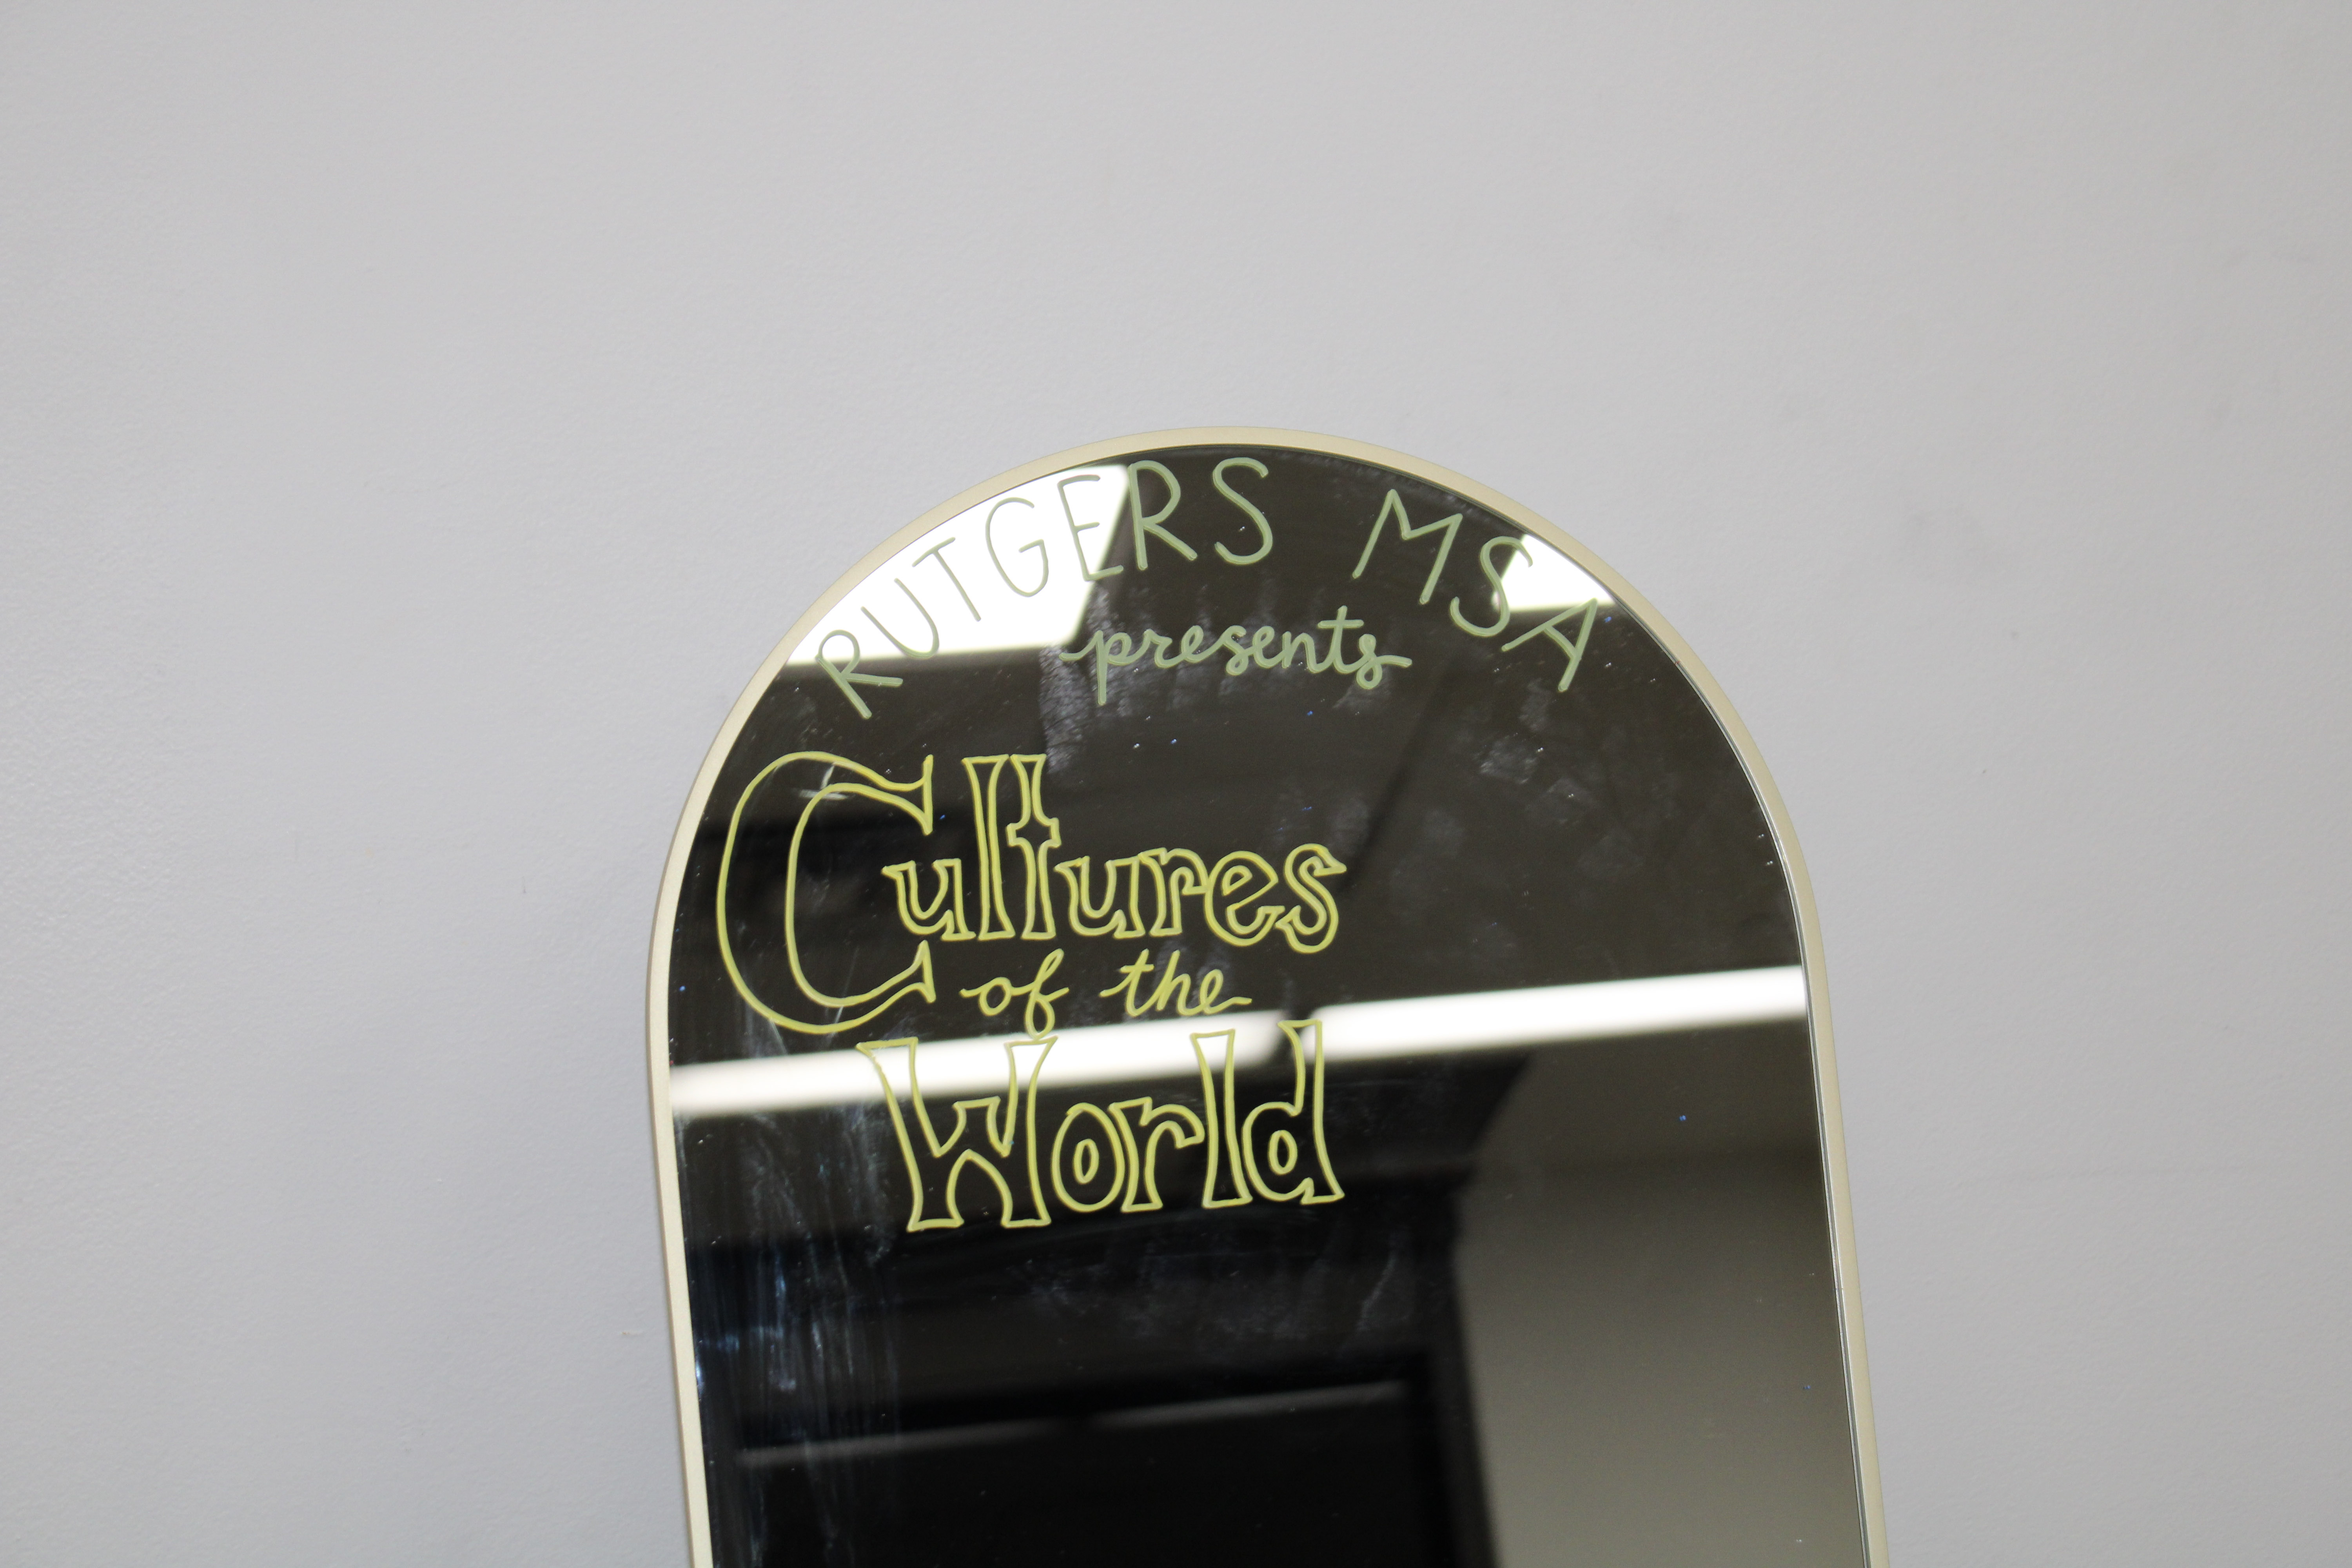 RUTGERS MSA
presents
Cultures
of the
World